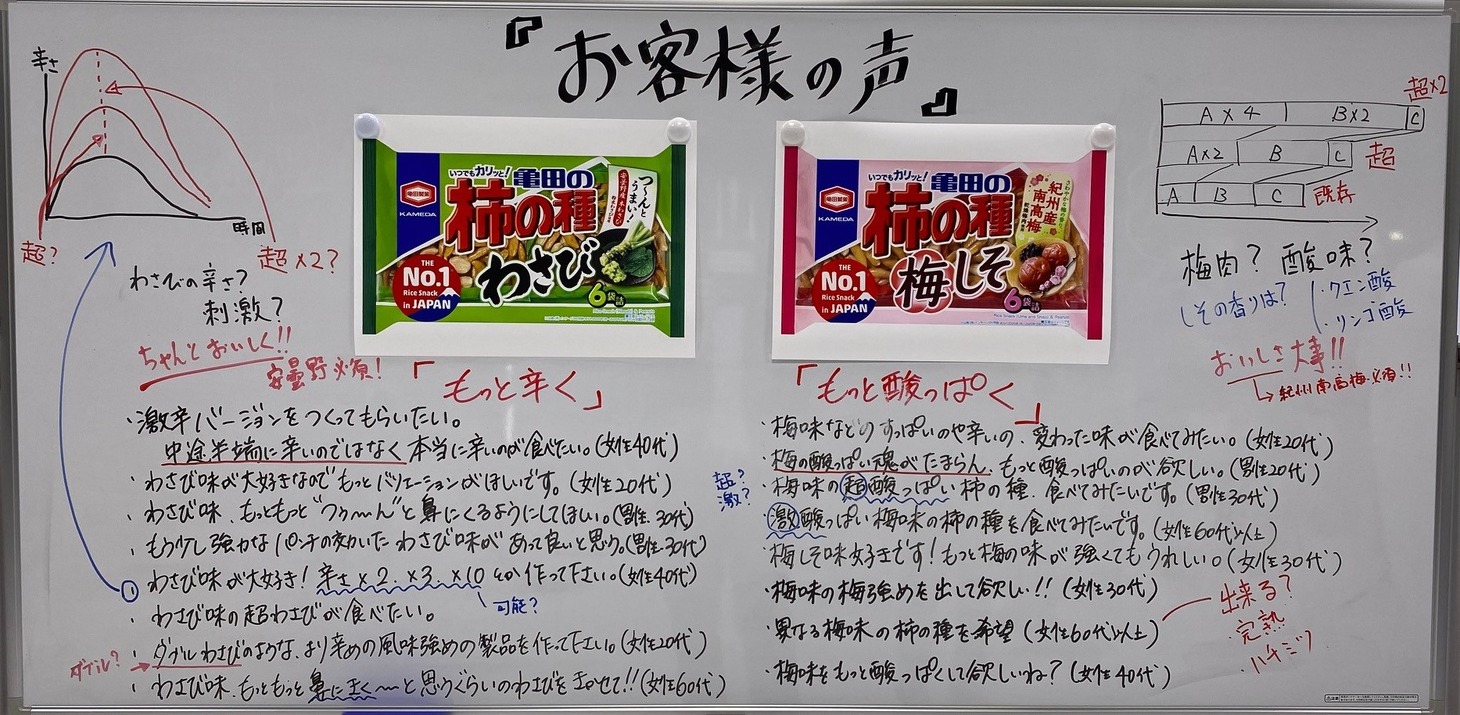 『お客様の声』
辛さ
時間
超?
超×2?
わさびの辛さ?
刺激?
ちゃんとおいしく!!
安曇野必須!
いつでもカリッと!
亀田の
柿の種
わさび
つ〜んと
うまい!
安曇野産本わさび
亀田製菓
KAMEDA
THE
No.1
Rice Snack
in JAPAN
6袋詰
「もっと辛く」
・激辛バージョンをつくってもらいたい。
中途半端に辛いのではなく本当に辛いのが食べたい。(女性40代)
・わさび味が大好きなのでもっとバリエーションがほしいです。(女性20代)
・わさび味、もっともっと"つぅ〜ん"と鼻にくるようにしてほしい。(男性30代)
・もう少し強力なパンチの効いたわさび味があって良いと思う。(男性30代)
①わさび味が大好き!辛さ×2、×3、×10とか作って下さい。(女性40代)
可能?
・わさび味の超わさびが食べたい。
・ダブルわさびのような、より辛めの風味強めの製品を作って下さい。(女性20代)
ダブル?
・わさび味、もっともっと鼻にきく〜と思うぐらいのわさびをきかせて!!(女性60代)
いつでもカリッと!
亀田の
柿の種
梅しそ
紀州産
南高梅
亀田製菓
KAMEDA
THE
No.1
Rice Snack
in JAPAN
6袋詰
「もっと酸っぱく」
・梅味などのすっぱいのや辛いの、変わった味が食べてみたい。(女性20代)
・梅の酸っぱい魂がたまらん、もっと酸っぱいのが欲しい。(男性20代)
・梅味の超酸っぱい柿の種、食べてみたいです。(男性30代)
超?
激?
激酸っぱい梅味の柿の種を食べてみたいです。(女性60代以上)
・梅しそ味好きです!もっと梅の味が強くてもうれしい。(女性30代)
・梅味の梅強めを出して欲しい!!(女性30代)
・異なる梅味の柿の種を希望(女性60代以上)
・梅味をもっと酸っぱくして欲しいね?(女性40代)
出来る?
・完熟
・ハチミツ
A×4 B×2 C 超×2
A×2 B C 超
A B C 既存
梅肉? 酸味?
しその香りは?
・クエン酸
・リンゴ酸
おいしさ大事!!
→紀州南高梅必須!!